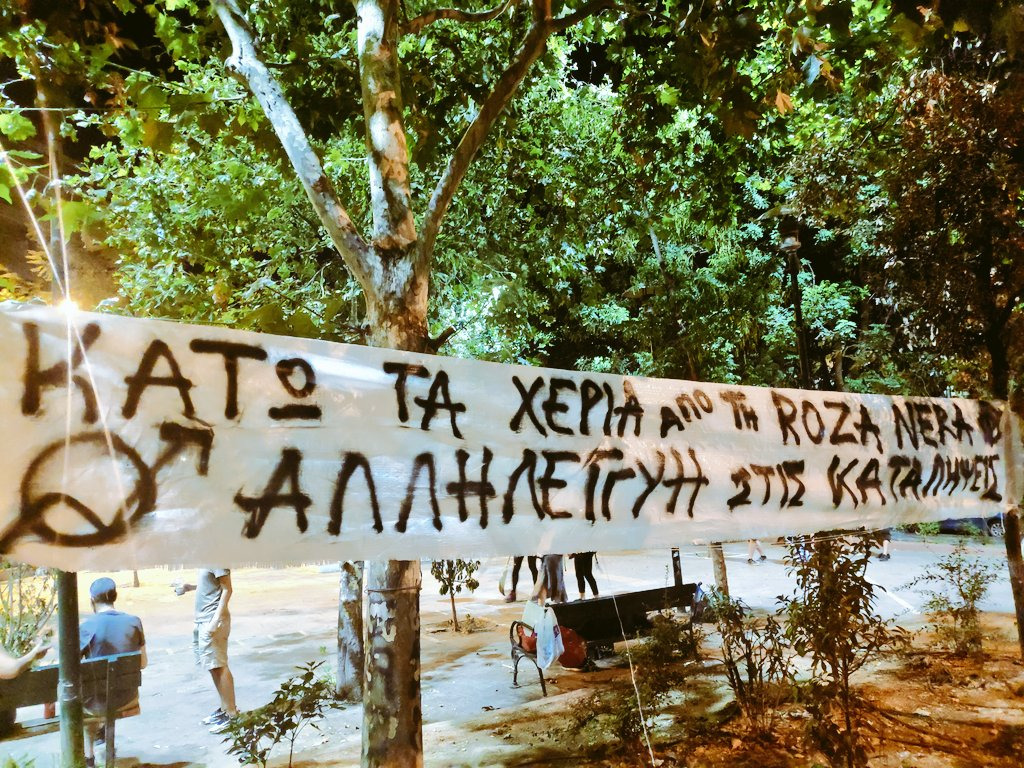 ΚΑΤΩ ΤΑ ΧΕΡΙΑ ΑΠΟ ΤΗ ROZA NERA
ΑΛΛΗΛΕΓΓΥΗ ΣΤΙΣ ΚΑΤΑΛΗΨΕΙΣ